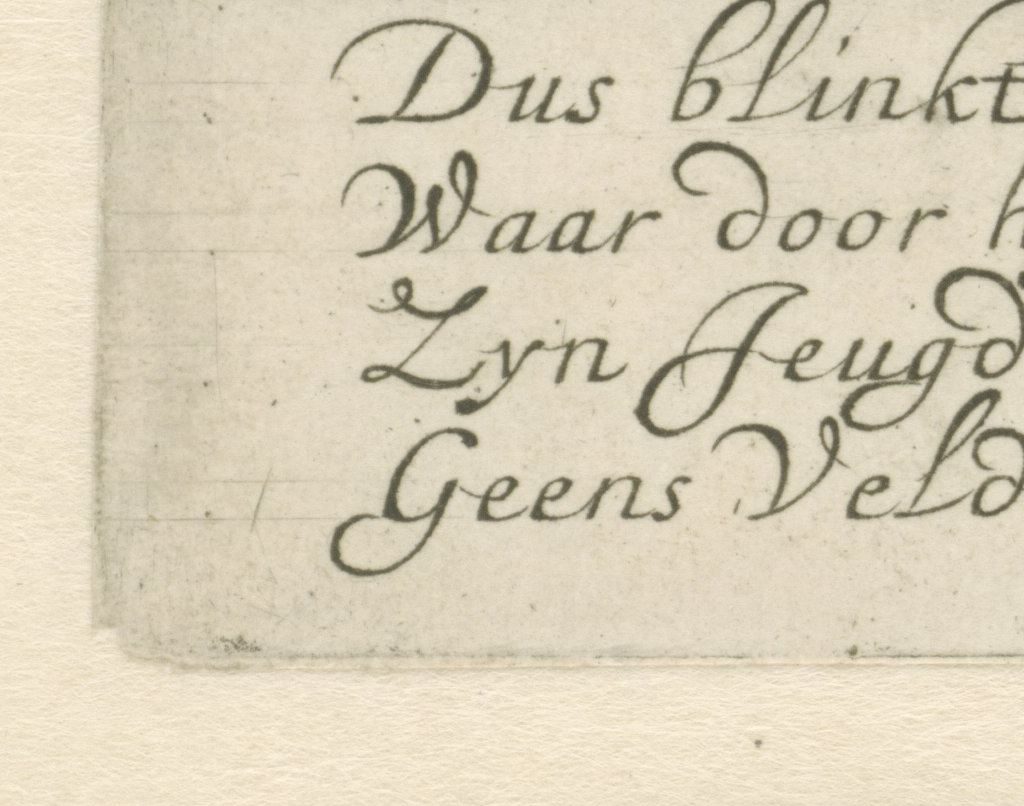 Dus blinkt
Waar door h
Zyn Jeugd
Geens Veld